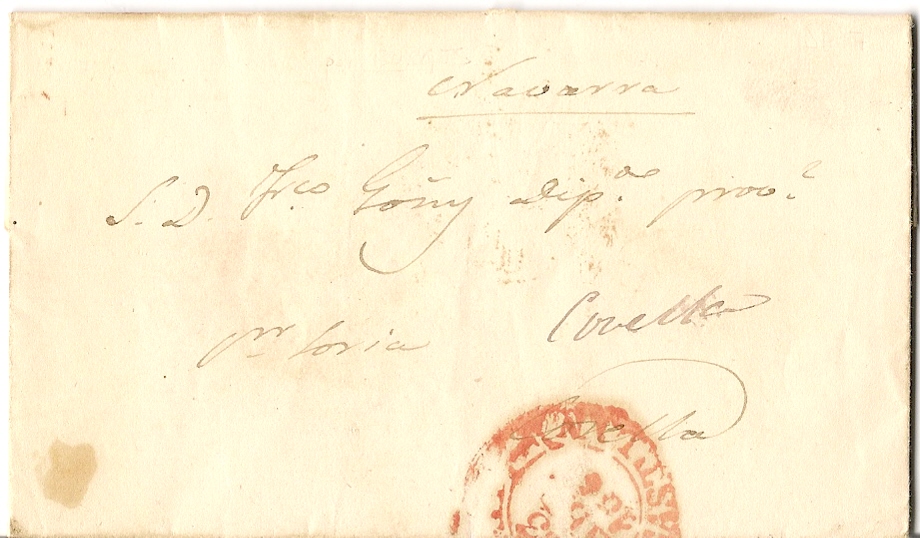 Navarra
S. D. Frco Goñy Dip.do prov.l
por Soria Corella
Corella